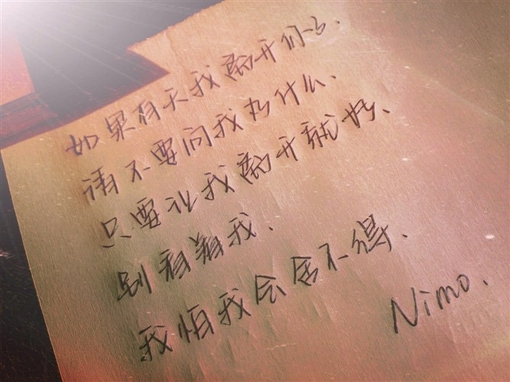 如果有天我离开你了.
请不要问我为什么.
只要让我离开就好.
别 我.
我怕我会舍不得.
Nimo.